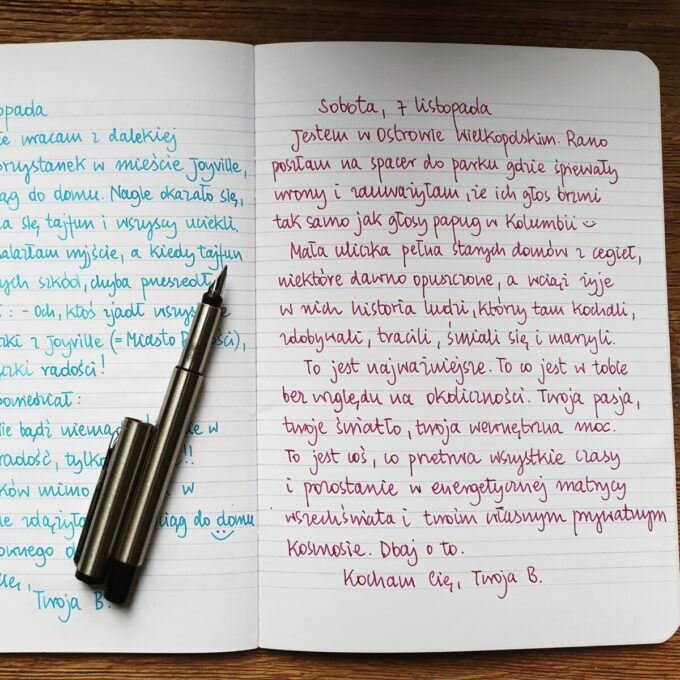 opada
ie wracam z dalekiej
rzystanek w mieście Joyville,
iąg do domu. Nagle okazało się,
a się tajfun i wszyscy uciekli.
nalazłam wyjście, a kiedy tajfun
ych szkód, chyba przeszedł
: - Och, ktoś zjadł wszys
ki z Joyville (= Miasto R ości),
zki radości!
powiedział:
ie bądź niemąd w
radość, tylko !!
ków mimo w
ie zdążyła iąg do domu
ownego d
Cię,
Twoja B.
Sobota, 7 listopada
Jestem w Ostrowie Wielkopolskim. Rano
poszłam na spacer do parku gdzie śpiewały
wrony i zauważyłam, że ich głos brzmi
tak samo jak głosy papug w Kolumbii
Mała uliczka pełna starych domów z cegieł,
niektóre dawno opuszczone, a wciąż żyje
w nich historia ludzi, którzy tam kochali,
zdobywali, tracili, śmiali się i marzyli.
To jest najważniejsze. To co jest w tobie
bez względu na okoliczności. Twoja pasja,
twoje światło, twoja wewnętrzna moc.
To jest coś, co przetrwa wszystkie czasy
i pozostanie w energetycznej matrycy
wszechświata i twoim własnym prywatnym
Kosmosie. Dbaj o to.
Kocham Cię, Twoja B.